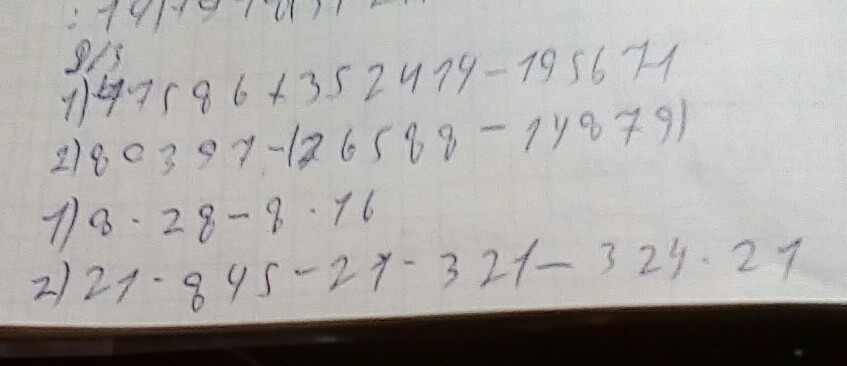 д/з
1) 41586 + 352419 - 195671
2) 80397 - (26588 - 14879)
1) 8 · 28 - 8 · 16
2) 21 · 845 - 21 · 321 - 324 · 21